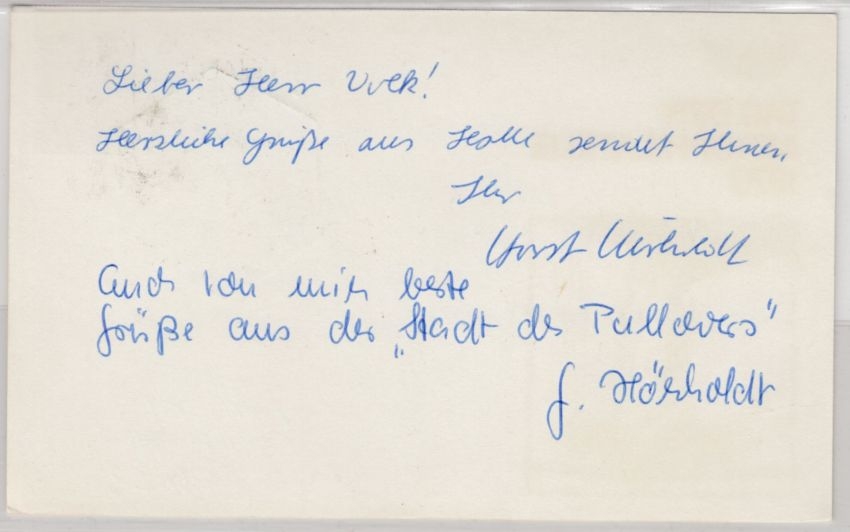 Lieber Herr Volk!
Herzliche Grüße aus Halle sendet Ihnen,
Ihr
Horst
Auch von mir beste
Grüße aus der „Stadt des Pullovers"
G.